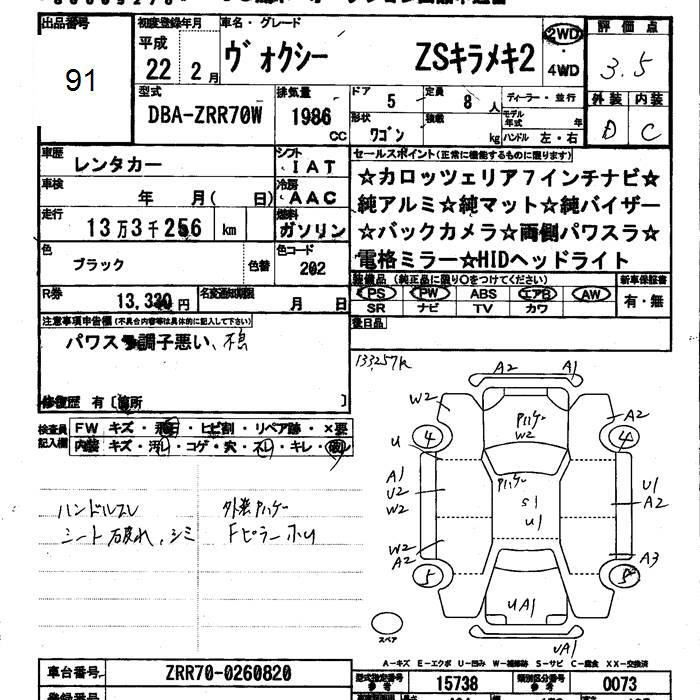 出品番号
91
初度登録年月
平成
22 2 月
車名・グレード
ヴォクシー ZSキラメキ2
2WD
・
4WD
評価点
3.5
外装 内装
D C
型式
DBA-ZRR70W
排気量
1986
CC
ドア
5
定員
8 人
ディーラー・並行
形状
ワゴン
積載
kg
モデル年式
年
ハンドル 左・右
車歴
レンタカー
シフト
IAT
車検
年 月( 日)
冷房
AAC
走行
13万3千256 km
燃料
ガソリン
色
ブラック
色替
色コード
202
R券
13,320円
名変通知期限
月 日
セールスポイント(正常に機能するものに限ります)
☆カロッツェリア7インチナビ☆
純アルミ☆純マット☆純バイザー
☆バックカメラ☆両側パワスラ☆
電格ミラー☆HIDヘッドライト
装備品 (純正品に限り○をつけてください)
PS PW ABS エアB AW
SR ナビ TV カワ
新車保証書
有・無
後日品
注意事項申告欄(不具合内容等は具体的に記入して下さい)
パワスラ調子悪い、
修復歴 有 [箇所 ]
133257K
検査員
記入欄
FW キズ・飛石・ヒビ割・リペア跡・×要
内装 キズ・汚レ・コゲ・穴・スレ・キレ・
ハンドルスレ
シート破れ、シミ
外装
Fピラー
A2 A1
W2
W2
A2
4
4
U
A1
U2
W2
S1
U1
U1
A2
W2
A2
A3
5
UA1
UA1
スペア
A-キズ E-エクボ U-凹み W-補修跡 S-サビ C-腐食 XX-交換済
車台番号
ZRR70-0260820
型式指定番号
参考
15738
類別区分番号
参考
0073
登録番号